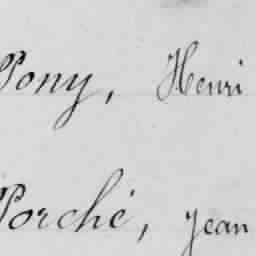 Pony, Henri
Porché, Jean